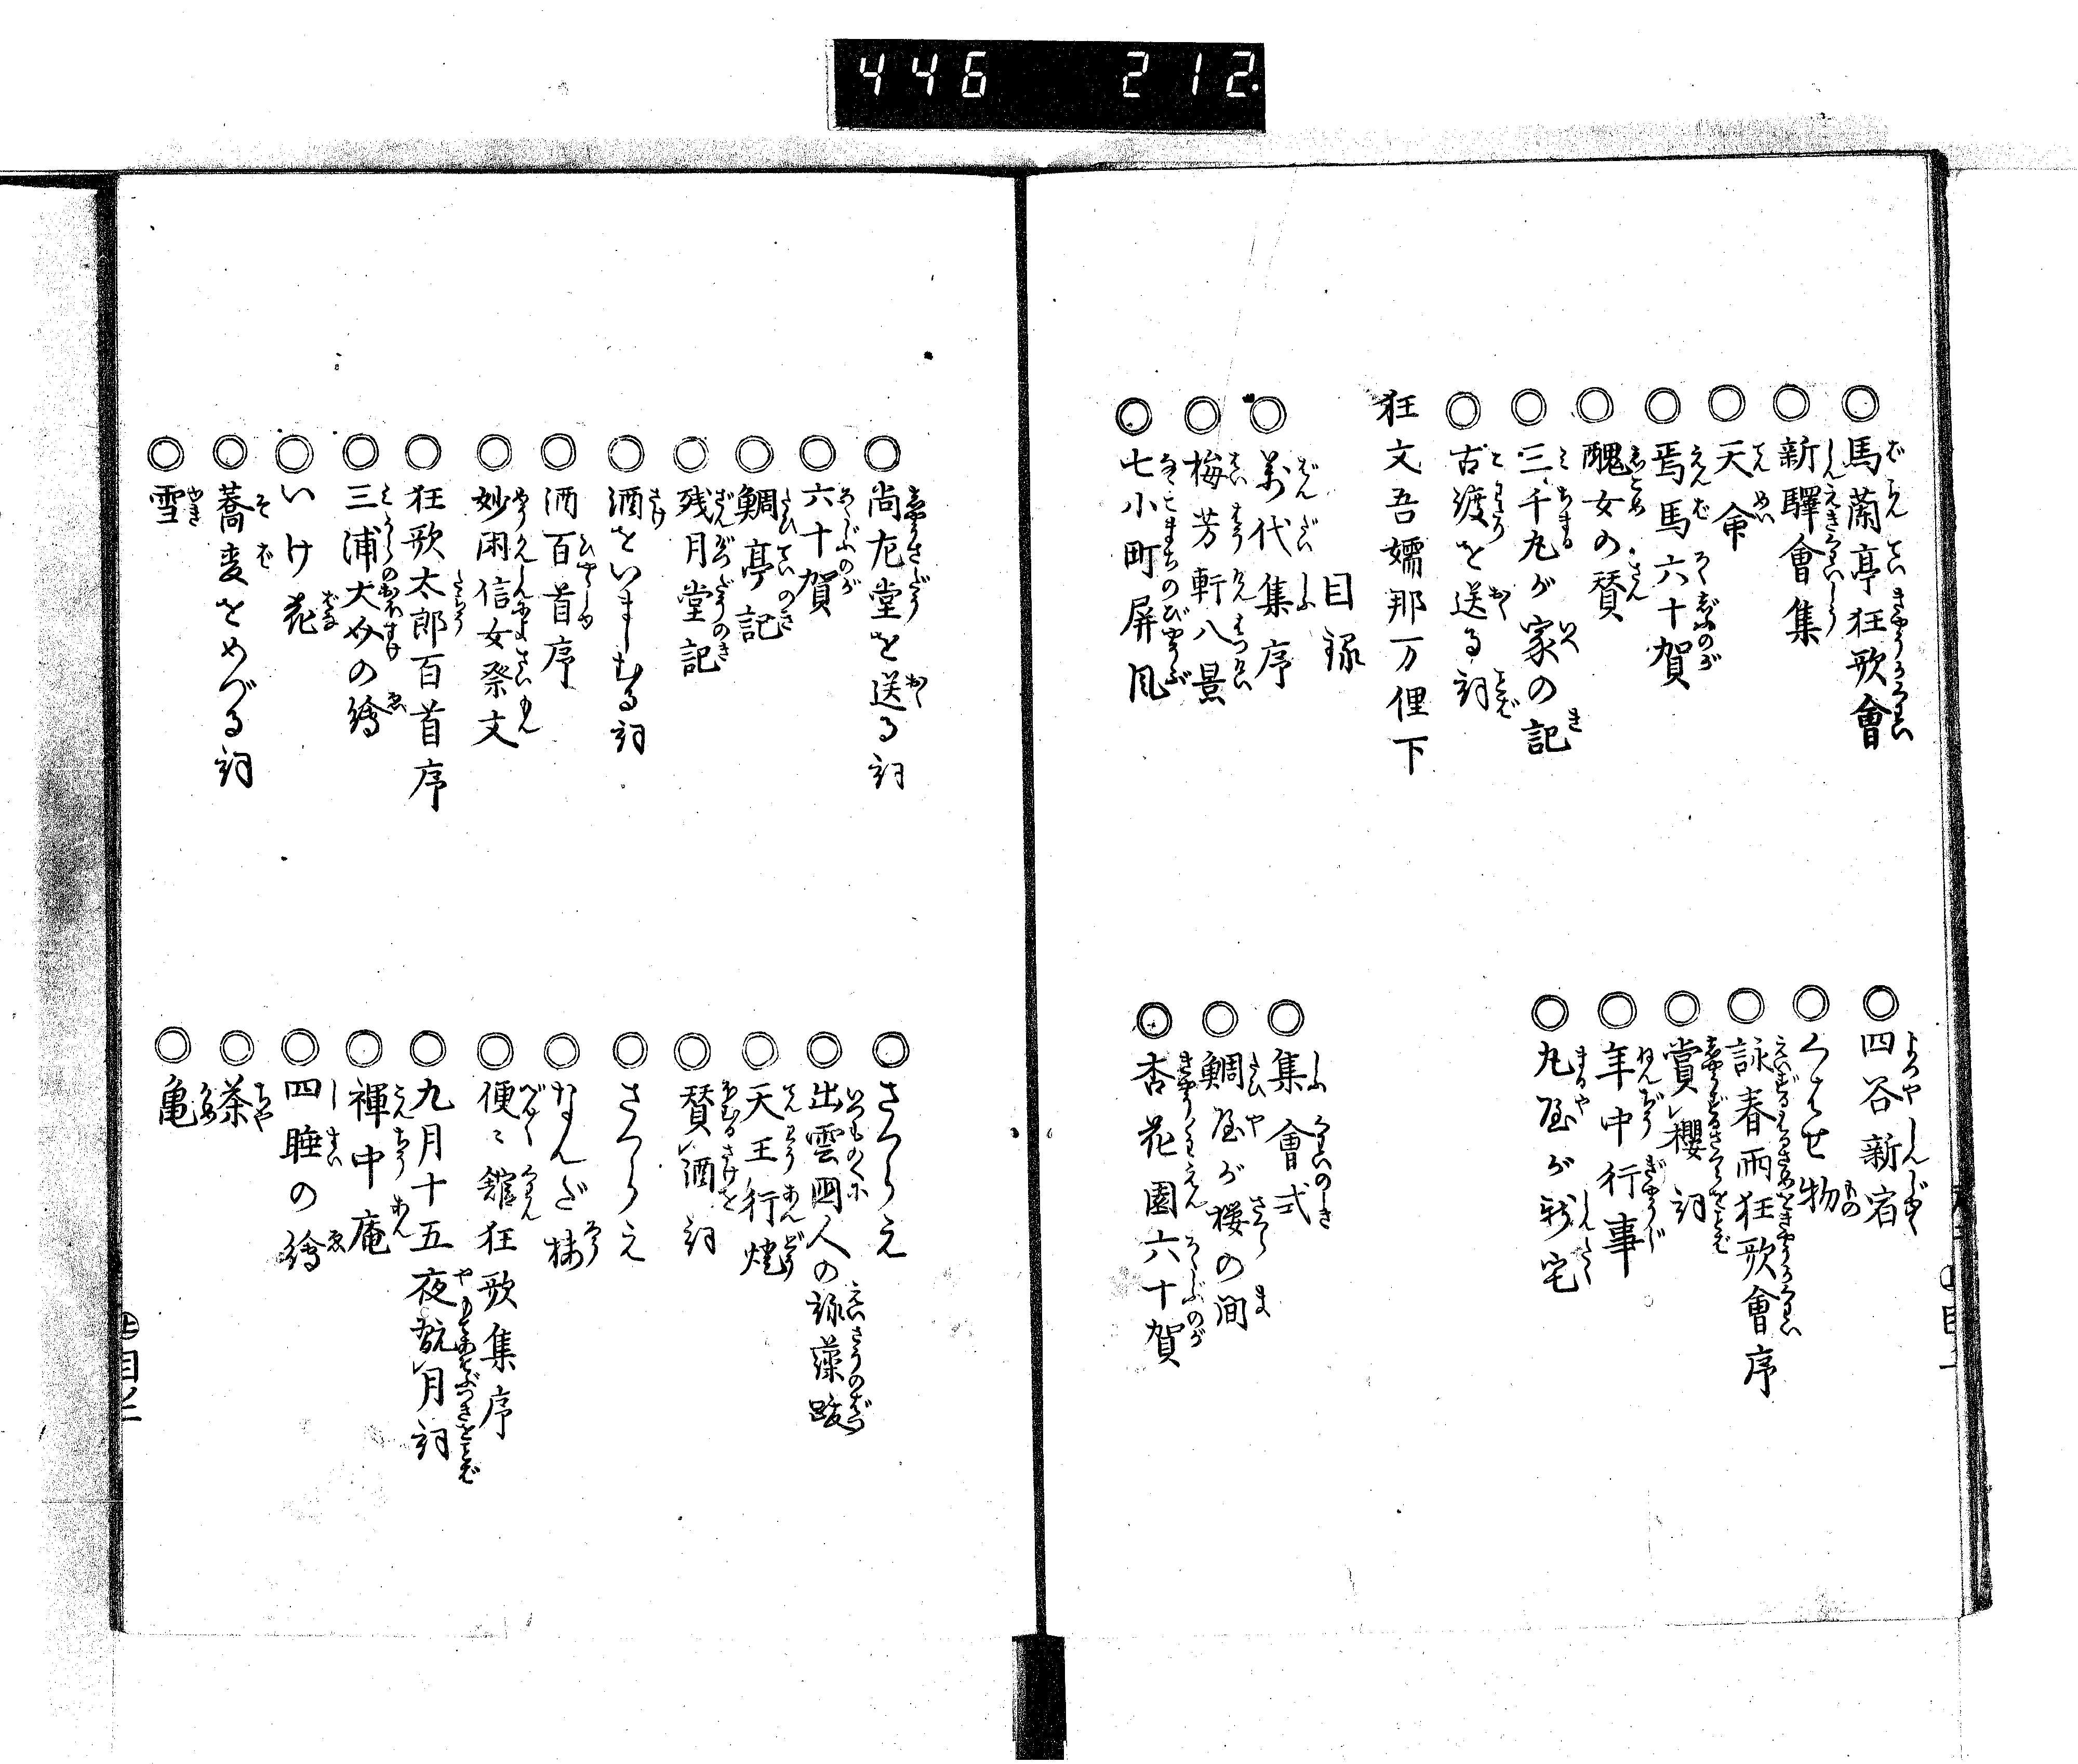 446 212.
○馬蘭亭狂歌會
○四谷新宿
○新驛會集
○くはせ物
○天命
○詠春雨狂歌會序
○焉馬六十賀
○賞櫻詞
○醜女の賛
○年中行事
○三千丸が家の記
○丸屋が新宅
○古渡を送る詞
狂文吾嬬那万俚下
目録
○万代集序
○集會式
○梅芳軒八景
○鯛屋が櫻の間
○七小町屏風
○杏花園六十賀
○尚左堂を送る詞
○さくらえ
○六十賀
○出雲國人の詠藻跋
○鯛亭記
○天王行燈
○残月堂記
○賛酒詞
○酒をいましむる詞
○さくらえ
○酒百首序
○なんざ樓
○妙閑信女祭文
○便〻館狂歌集序
○狂歌太郎百首序
○九月十五夜翫月詞
○三浦大助の繪
○褌中庵
○いけ花
○四睡の繪
○蕎麦をめづる詞
○茶
○雪
○亀